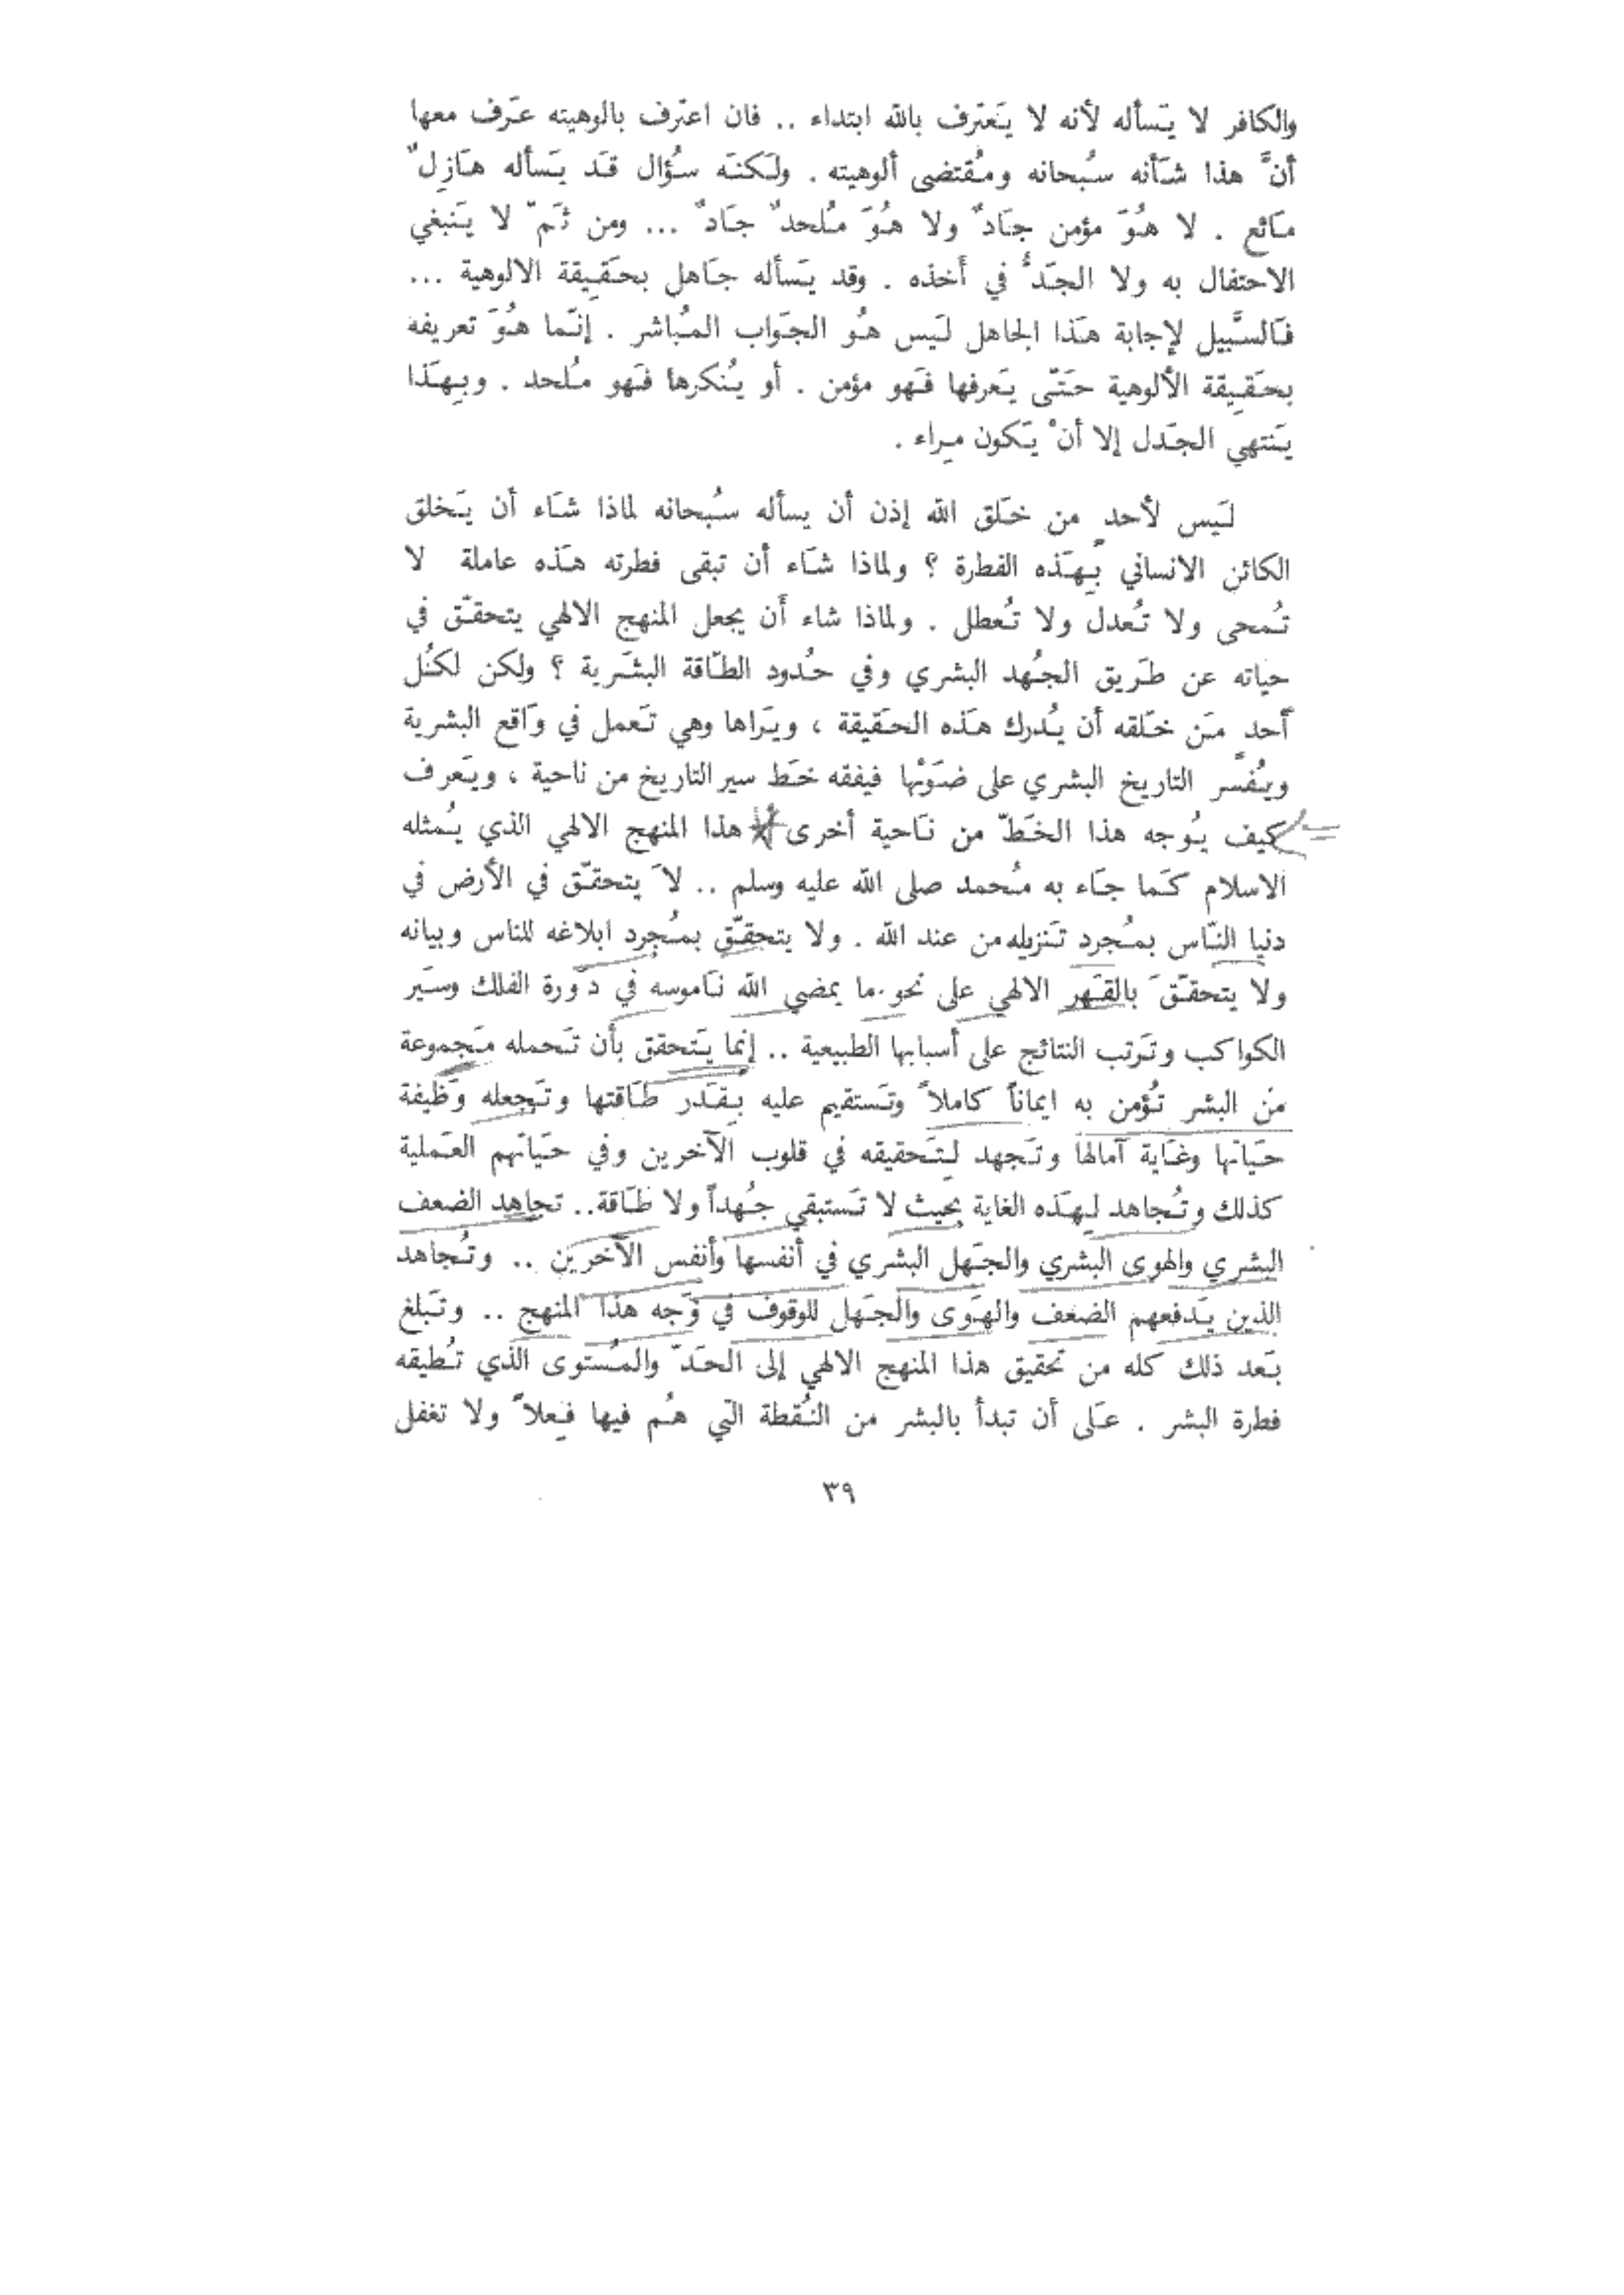 والكافر لا يَسأله لأنه لا يَعترف بالله ابتداء .. فان اعترف بالوهيته عَرف معها
أنَّ هذا شَأنه سُبحانه ومُقتضى ألوهيته . ولَكنَه سُؤال قَد يَسأله هَازلٌ
مَائع . لا هُوَ مؤمن جَادٌ ولا هُوَ مُلحدٌ جَادٌ ... ومن ثَمّ لا يَنبغي
الاحتفال به ولا الجَدُّ في أَخذه . وقد يَسأله جَاهل بحَقِيقة الالوهية ...
فَالسَّبيل لإجابة هَذا الجاهل لَيس هُو الجَواب المُباشر . إنّما هُوَ تعريفه
بحَقِيقة الألوهية حَتّى يَعرفها فَهو مؤمن . أو يُنكرها فَهو مُلحد . وبِهَذا
يَنتهي الجَدل إلا أنْ يَكون مِراء .
لَيس لأحدٍ من خَلق الله إذن أن يسأله سُبحانه لماذا شَاء أن يَخلق
الكائن الانساني بِهَذه الفطرة ؟ ولماذا شَاء أن تبقى فطرته هَذه عاملة لا
تُمحى ولا تُعدل ولا تُعطل . ولماذا شاء أن يجعل المنهج الالهي يتحقّق في
حياته عن طَريق الجُهد البشري وفي حُدود الطّاقة البشَرية ؟ ولكن لكُل
أحد مَن خَلقه أن يُدرك هَذه الحَقيقة ، ويَراها وهي تَعمل في وَاقع البشرية
ويُفسَّر التاريخ البشري على ضَوْئها فيفقه خَط سير التاريخ من ناحية ، ويَعرف
كيف يُوجه هذا الخَطّ من نَاحية أخرى هذا المنهج الالهي الذي يُمثله
الاسلام كَما جَاء به مُحمد صلى الله عليه وسلم .. لاَ يتحقّق في الأرض في
دنيا النّاس بمُجرد تَنزيله من عند الله . ولا يتحقّق بمُجرد ابلاغه للناس وبيانه
ولا يتحقّقَ بالقَهر الالهي على نحو ما يمضي الله نَاموسه في دَورة الفلك وسَير
الكواكب وتَرتب النتائج على أسبابها الطبيعية .. إنما يَتحقق بأن تَحمله مَجموعة
مَن البشر تُؤمن به ايماناً كاملاً وتَستقيم عليه بِقَدر طَاقتها وتَجعله وَظيفة
حَياتها وغَاية آمالها وتَجهد لِتَحقيقه في قلوب الآخرين وفي حَياتهم العَملية
كذلك وتُجاهد لِهَذه الغاية بحيث لا تَستبقي جُهداً ولا طَاقة.. تجاهد الضعف
البشري والهوى البشري والجَهل البشري في أنفسها وأنفس الآخرين .. وتُجاهد
الذين يَدفعهم الضعف والهَوى والجَهل للوقوف في وَجه هذا المنهج .. وتَبلغ
بَعد ذلك كله من تحقيق هذا المنهج الالهي إلى الحَدّ والمُستوى الذي تُطيقه
فطرة البشر . عَلى أن تبدأ بالبشر من النُقطة التي هُم فيها فِعلاً ولا تغفل
٣٩